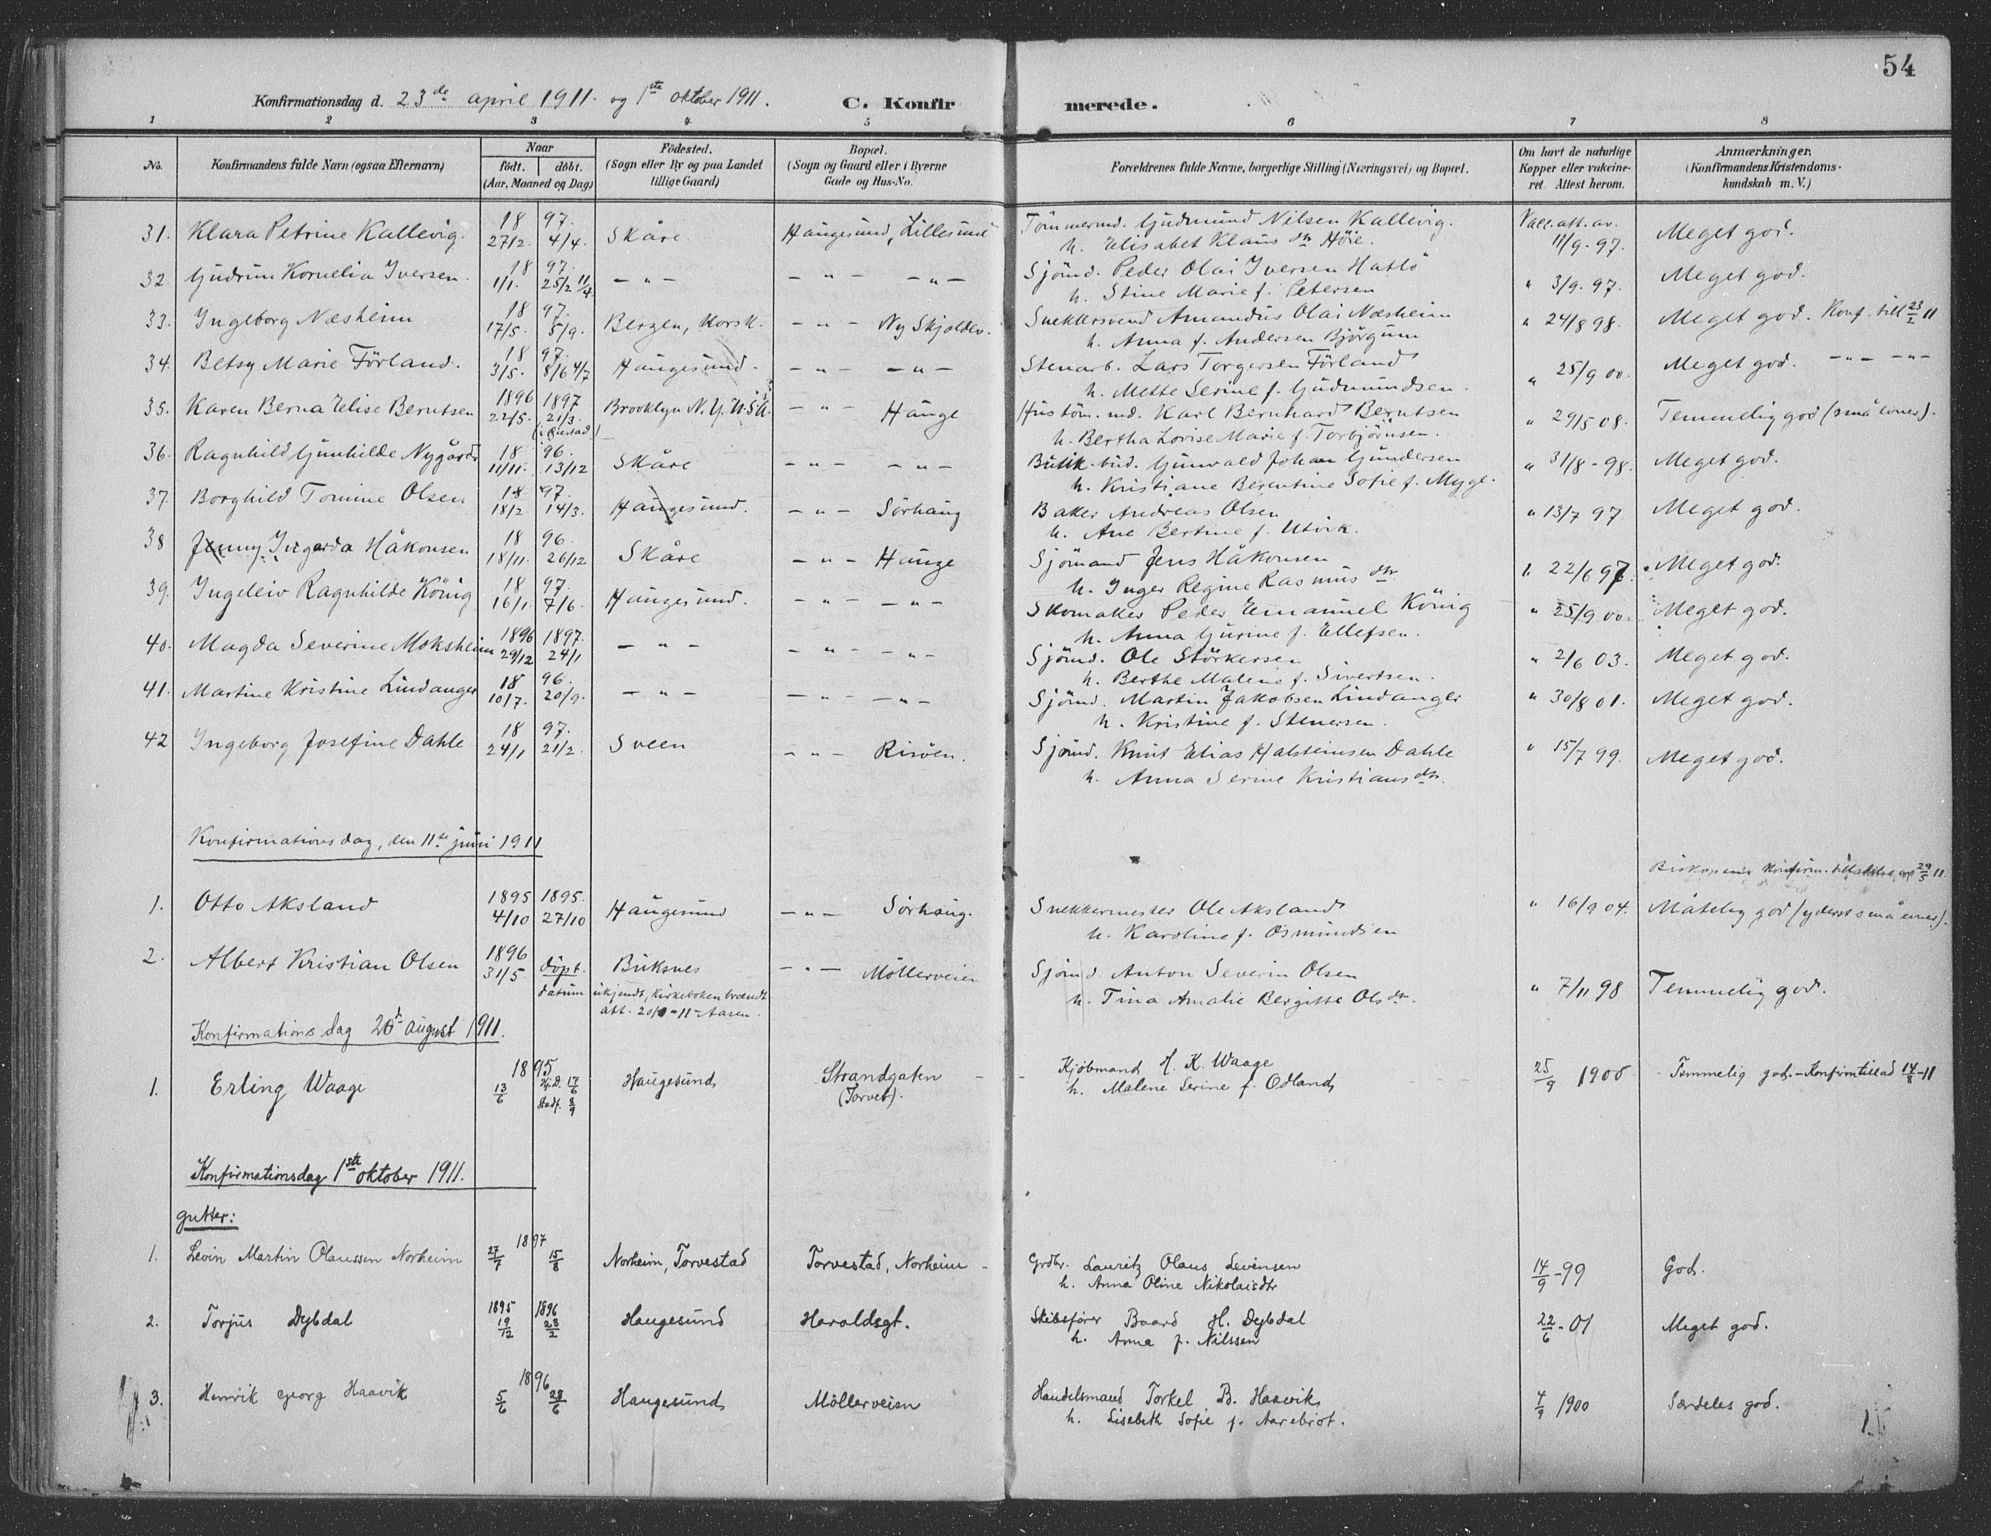 54
Konfirmationsdag d. 23de april 1911. og 1ste oktober 1911. C. Konfirmerede.
1 2 3 4 5 6 7 8
No. Konfirmandens fulde Navn (ogsaa Efternavn) Naar født. døbt. (Aar, Maaned og Dag) Födested. (Sogn eller By og paa Landet tillige Gaard) Bopæl. (Sogn og Gaard eller i Byerne Gade og Hus-No. Forældrenes fulde Navne, borgerlige Stilling (Næringsvei) og Bopæl. Om havt de naturlige Kopper eller vakcineret. Attest herom. Anmærkninger. (Konfirmandens Kristendomskundskab m. V.)
31. Klara Petrine Kallevig. 1897. 27/2. 4/4. Skåre. Haugesund, Lillesund Tömmermd. Gudmund Nilsen Kallevig. Vacc. att. av 11/9-97. Meget god.
h. Elisabet Klausdtr Höie.
32. Gudrun Kornelia Iversen. 1897. 1/1. 25/2 11/4 — " — — " — — " — Sjömd. Peder Olai Iversen Hatlö " 3/9-97. Meget god.
h. Stine Marie f. Petersen
33. Ingeborg Næsheim 1897. 17/5. 5/9. Bergen, Korsk. — " — Ny Skjoldev. Snekkersvend Amandus Olai Næsheim " 24/8 98. Meget god. Konf. till 23/2 11
h. Anna f. Andersen Björgum
34. Betsy Marie Förland. 1897. 3/5. 8/6 4/7 Haugesund. — " — — " — Stenarb. Lars Torgersen Förland " 25/9 00. Meget god. — " — — " —
h. Mette Serine f. Gudmundsen.
35. Karen Berna Elise Berntsen 1896 1897 22/5. 21/3 Brooklyn N.Y. U.S.A. — " — Hauge Hustöm.md. Karl Bernhard Berntsen " 29/5 08. Temmelig god (små evner).
h. Bertha Lovise Marie f. Torbjörnsen.
36. Ragnhild Gunhilde Nygård 1896. 11/11. 13/12 Skåre — " — — " — Butik-bud. Gunvald Johan Gundersen " 31/8-98. Meget god.
h. Kristiane Berentine Sofie f. Myge.
37. Borghild Tomine Olsen 1897. 18/2 14/3. Haugesund. — " — Sörhaug Baker Andreas Olsen " 13/7 97 Meget god.
h. Ane Bertine f. Utvik.
38 Jenny Ingarda Håkonsen 1896. 18/11. 26/12 Skåre — " — Hauge Sjömand Jens Håkonsen " 22/6 97. Meget god.
h. Inger Regine Rasmusdtr.
39. Ingeleiv Ragnhilde König 1897. 16/1. 7/6. Haugesund. — " — — " — Skomaker Peder Emanuel König " 25/9 00. Meget god.
h. Anna Gurine f. Ellefsen.
40. Magda Severine Moksheim 1896 1897. 29/12 24/1 — " — — " — — " — Sjömd. Ole Störkersen " 2/6 03. Meget god.
h. Berthe Malene f. Sivertsen.
41. Martine Kristine Lindanger 1896. 10/7. 20/9. — " — — " — — " — Sjömd. Martin Jakobsen Lindanger " 30/8 01. Meget god.
h. Kristine f. Stenersen.
42 Ingeborg Josefine Dahle 1897. 24/1 21/2. Sveen — " — Risöen. Sjömd. Knut Elias Halsteinsen Dahle " 15/7 99. Meget god.
h. Anna Serine Kristiansdtr.
Konfirmationsdag, den 11te juni 1911
Biskopens konfirm. tilladelse, 29/5 11.
1. Otto Aksland 1895 1895. 4/10 27/10 Haugesund — " — Sörhaug. Snekkermester Ole Aksland " 16/9 04. Måtelig god (yderst små evner).
h. Karoline f. Osmundsen
2. Albert Kristian Olsen 1896 31/5. döpt. Buksnes — " — Möllerveien Sjömd Anton Severin Olsen " 7/11 98 Temmelig god.
datum ukjendt, Kirkeboken brændt h. Tina Amalie Bergitte Olsdtr.
Konfirmationsdag 20de august 1911.
1. Erling Waage 1895 13/6 Hj.D. 17/6 Stadf. 8/9 Haugesund Strandgaten (Torvet). Kjöbmand H. K. Waage 25/9 1900 Temmelig god. - Konfirmtillad 14/8-11
h. Malene Serine f. Odland
Konfirmationsdag 1ste oktober 1911.
gutter:
1. Levin Martin Olaussen Norheim 1897 27/7 15/8 Norheim, Torvestad Torvestad, Norheim Grdbr. Lauritz Olaus Levensen 14/9-99 God.
h. Anna Oline Nikolaisdtr
2. Torjus Dybdal 1895 1896 19/12 23/2 Haugesund Haraldsgt. Skibsfører Baard H. Dybdal 22/6-01 Meget god.
h. Anna f. Nilssen
3. Henrik Georg Haavik 1896 5/6 28/6 Haugesund Möllerveien Handelsmand Torkel B. Haavik 4/9 1900 Særdeles god.
h. Lisebeth Sofie f. Aarebrot.